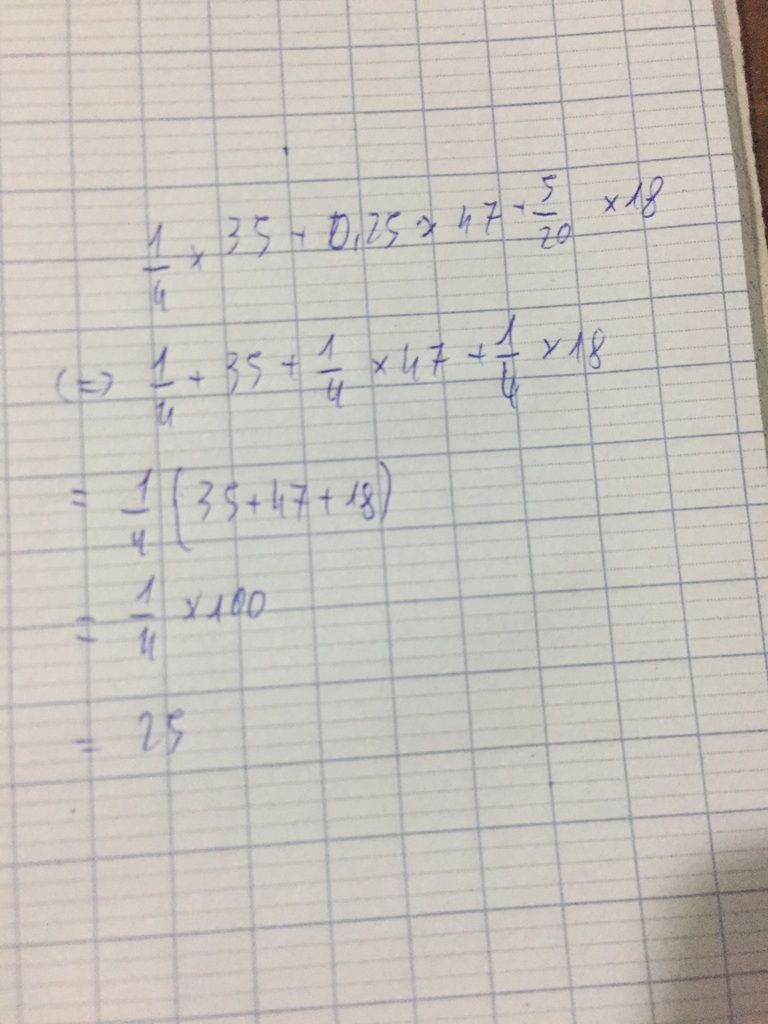 1/4 × 35 + 0,25 × 47 + 5/20 × 18
(=) 1/4 + 35 + 1/4 × 47 + 1/4 × 18
= 1/4 (35+47+18)
= 1/4 × 100
= 25